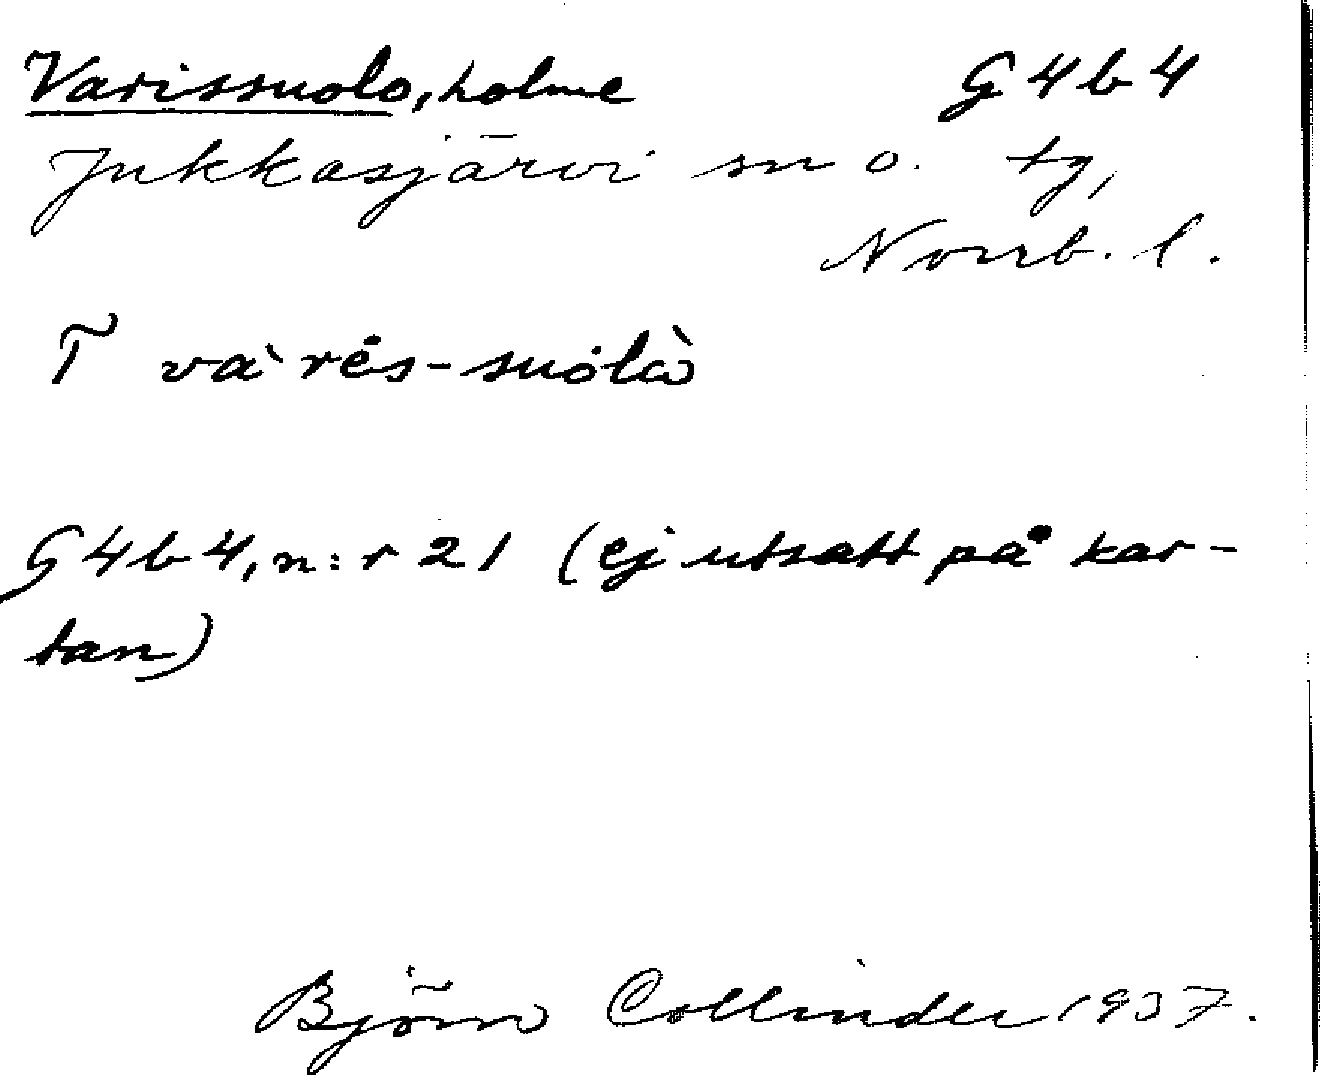 Varissuolo, holme G4b4
Jukkasjärvi sn o. tg,
Norrb. l.
T va`rés-suólà
G4b4, n:r 21 (ej utsatt på kar-
tan)
Björn Collinder 1937.